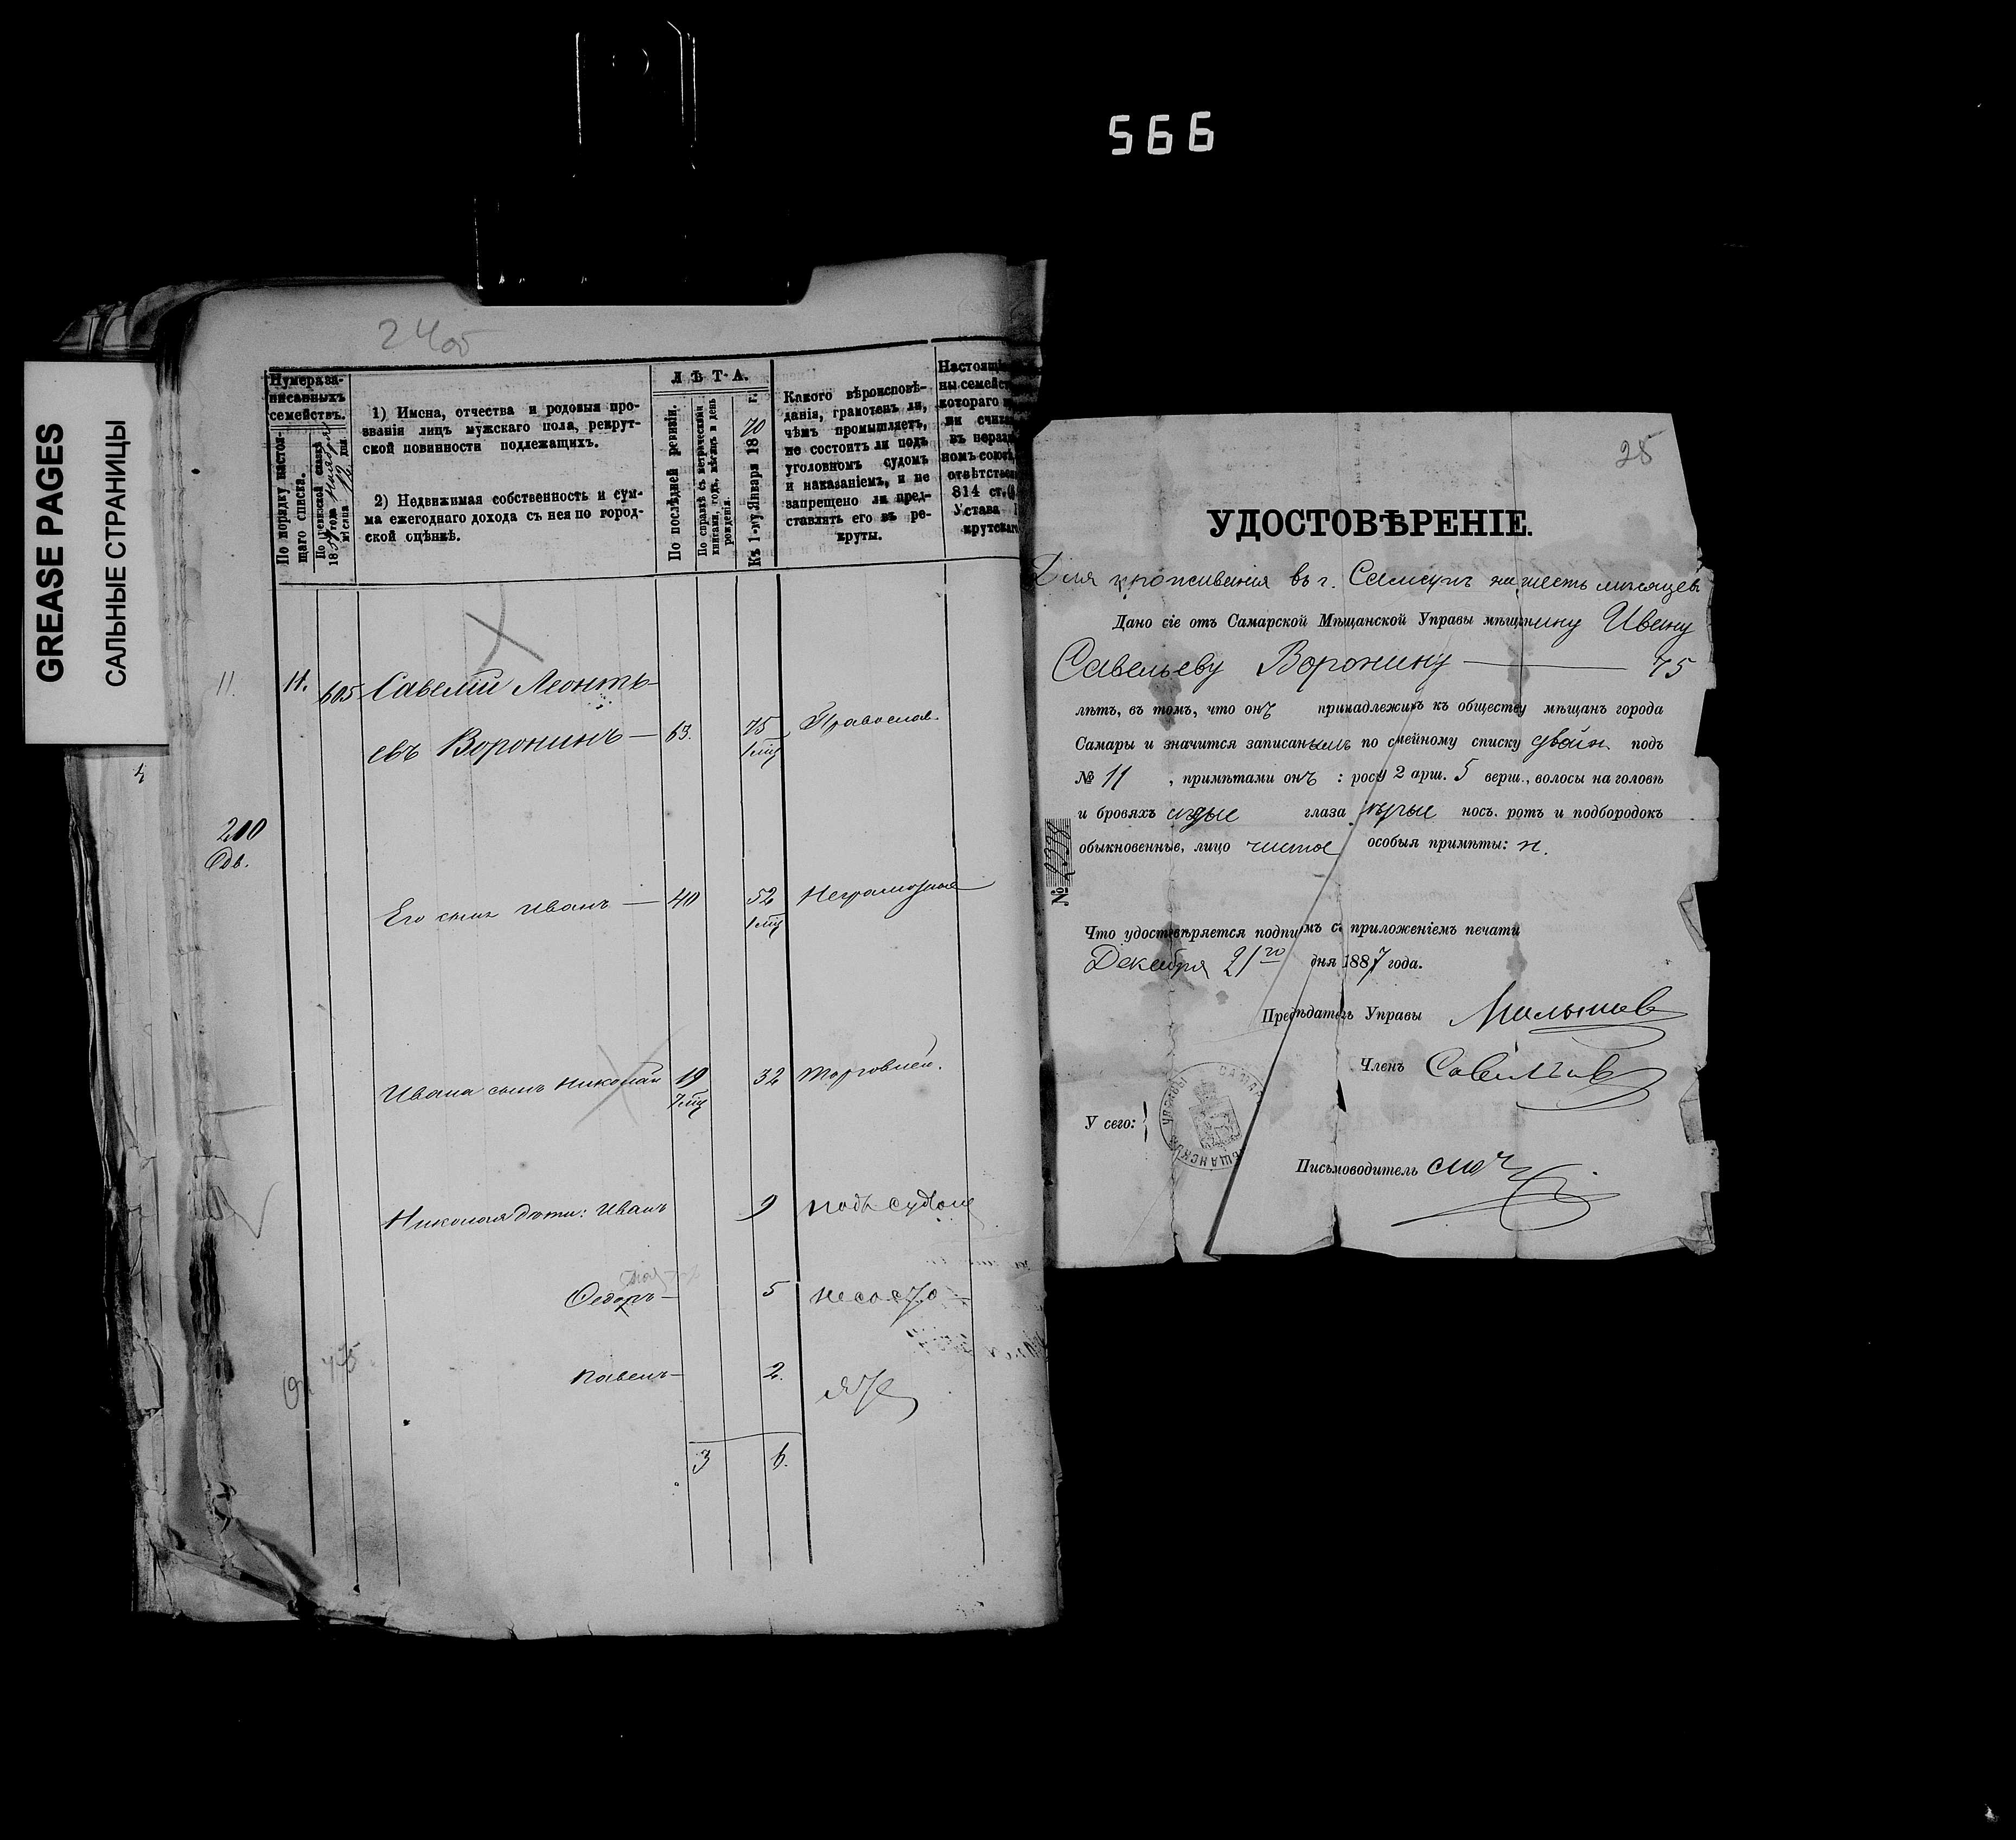 566
GREASE PAGES
САЛЬНЫЕ СТРАНИЦЫ
24об
Нумера за-
писанныхъ
семействъ.
По порядку настоя-
щаго списка.
По ревизской сказкѣ
1857 года Ноября
мѣсяца дня.
1) Имена, отчества и родовыя про-
званія лицъ мужскаго пола, рекрут-
ской повинности подлежащихъ.
2) Недвижимая собственность и сум-
ма ежегоднаго дохода съ нея по город-
ской оцѣнкѣ.
ЛѢТА.
По послѣдней ревизіи.
По справкѣ съ метрическими
книгами, годъ, мѣсяцъ и день
рожденія.
Къ 1-му Января 1870 г.
Какого вѣроисповѣ-
данія, грамотенъ ли,
чѣмъ промышляетъ,
не состоитъ ли подъ
уголовномъ судомъ
и наказаніемъ, и не
запрещено ли пред-
ставлять его въ ре-
круты.
Настоящі
ны семейст
котораго
ли счита
въ нераз
номъ союзѣ
отвѣтствен
814 ст.
Устава
крутскаго
11. 11. 605 Савелій Леонть-
евъ Воронинъ — 63. 75 Православ.
1 мц
200
Одв.
Его сынъ Иванъ — 40 52 Неграмотные
1 мц
Ивана сынъ Николай 19 32 торговлей.
7 мц
Николая дѣти: Иванъ 9 подъ судомъ
Федоръ — 5 не состо-
Павелъ — 2. ятъ
3 6.
25
УДОСТОВѢРЕНІЕ.
Для проживанія въ г. Самарѣ на шесть мѣсяцевъ
Дано сіе отъ Самарской Мѣщанской Управы мѣщанину Ивану
Савельеву Воронину — 75
лѣтъ, въ томъ, что онъ принадлежитъ къ обществу мѣщанъ города
Самары и значится записаннымъ по семейному списку двойн. подъ
№ 11 , примѣтами онъ : росту 2 арш. 5 верш., волосы на головѣ
и бровяхъ сѣдые глаза сѣрые носъ, ротъ и подбородокъ
обыкновенные, лицо чистое особыя примѣты: н.
№ 2398
Что удостовѣряется подписомъ съ приложеніемъ печати
Декабря 21го дня 1887 года.
Предсѣдатель Управы Малышев
Членъ Савельев
У сего:
Письмоводитель